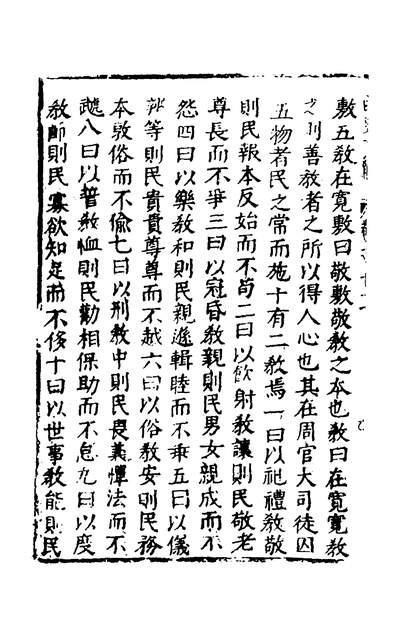 敷五教在寛敷曰敬敷敬教之本也教曰在寛寛教
之則善教者之所以得人心也其在周官大司徒因
五物者民之常而施十有二教焉一曰以祀禮教敬
則民報本反始而不苟二曰以飲射教讓則民敬老
尊長而不爭三曰以冠昏教親則民男女親成而不
怨四曰以樂教和則民親遜輯睦而不乖五曰以儀
辨等則民貴貴尊尊而不越六曰以俗教安則民務
本敦俗而不偷七曰以刑教中則民畏義憚法而不
虣八曰以誓教恤則民勸相保助而不怠九曰以度
教節則民寡欲知足而不侈十曰以世事教能則民